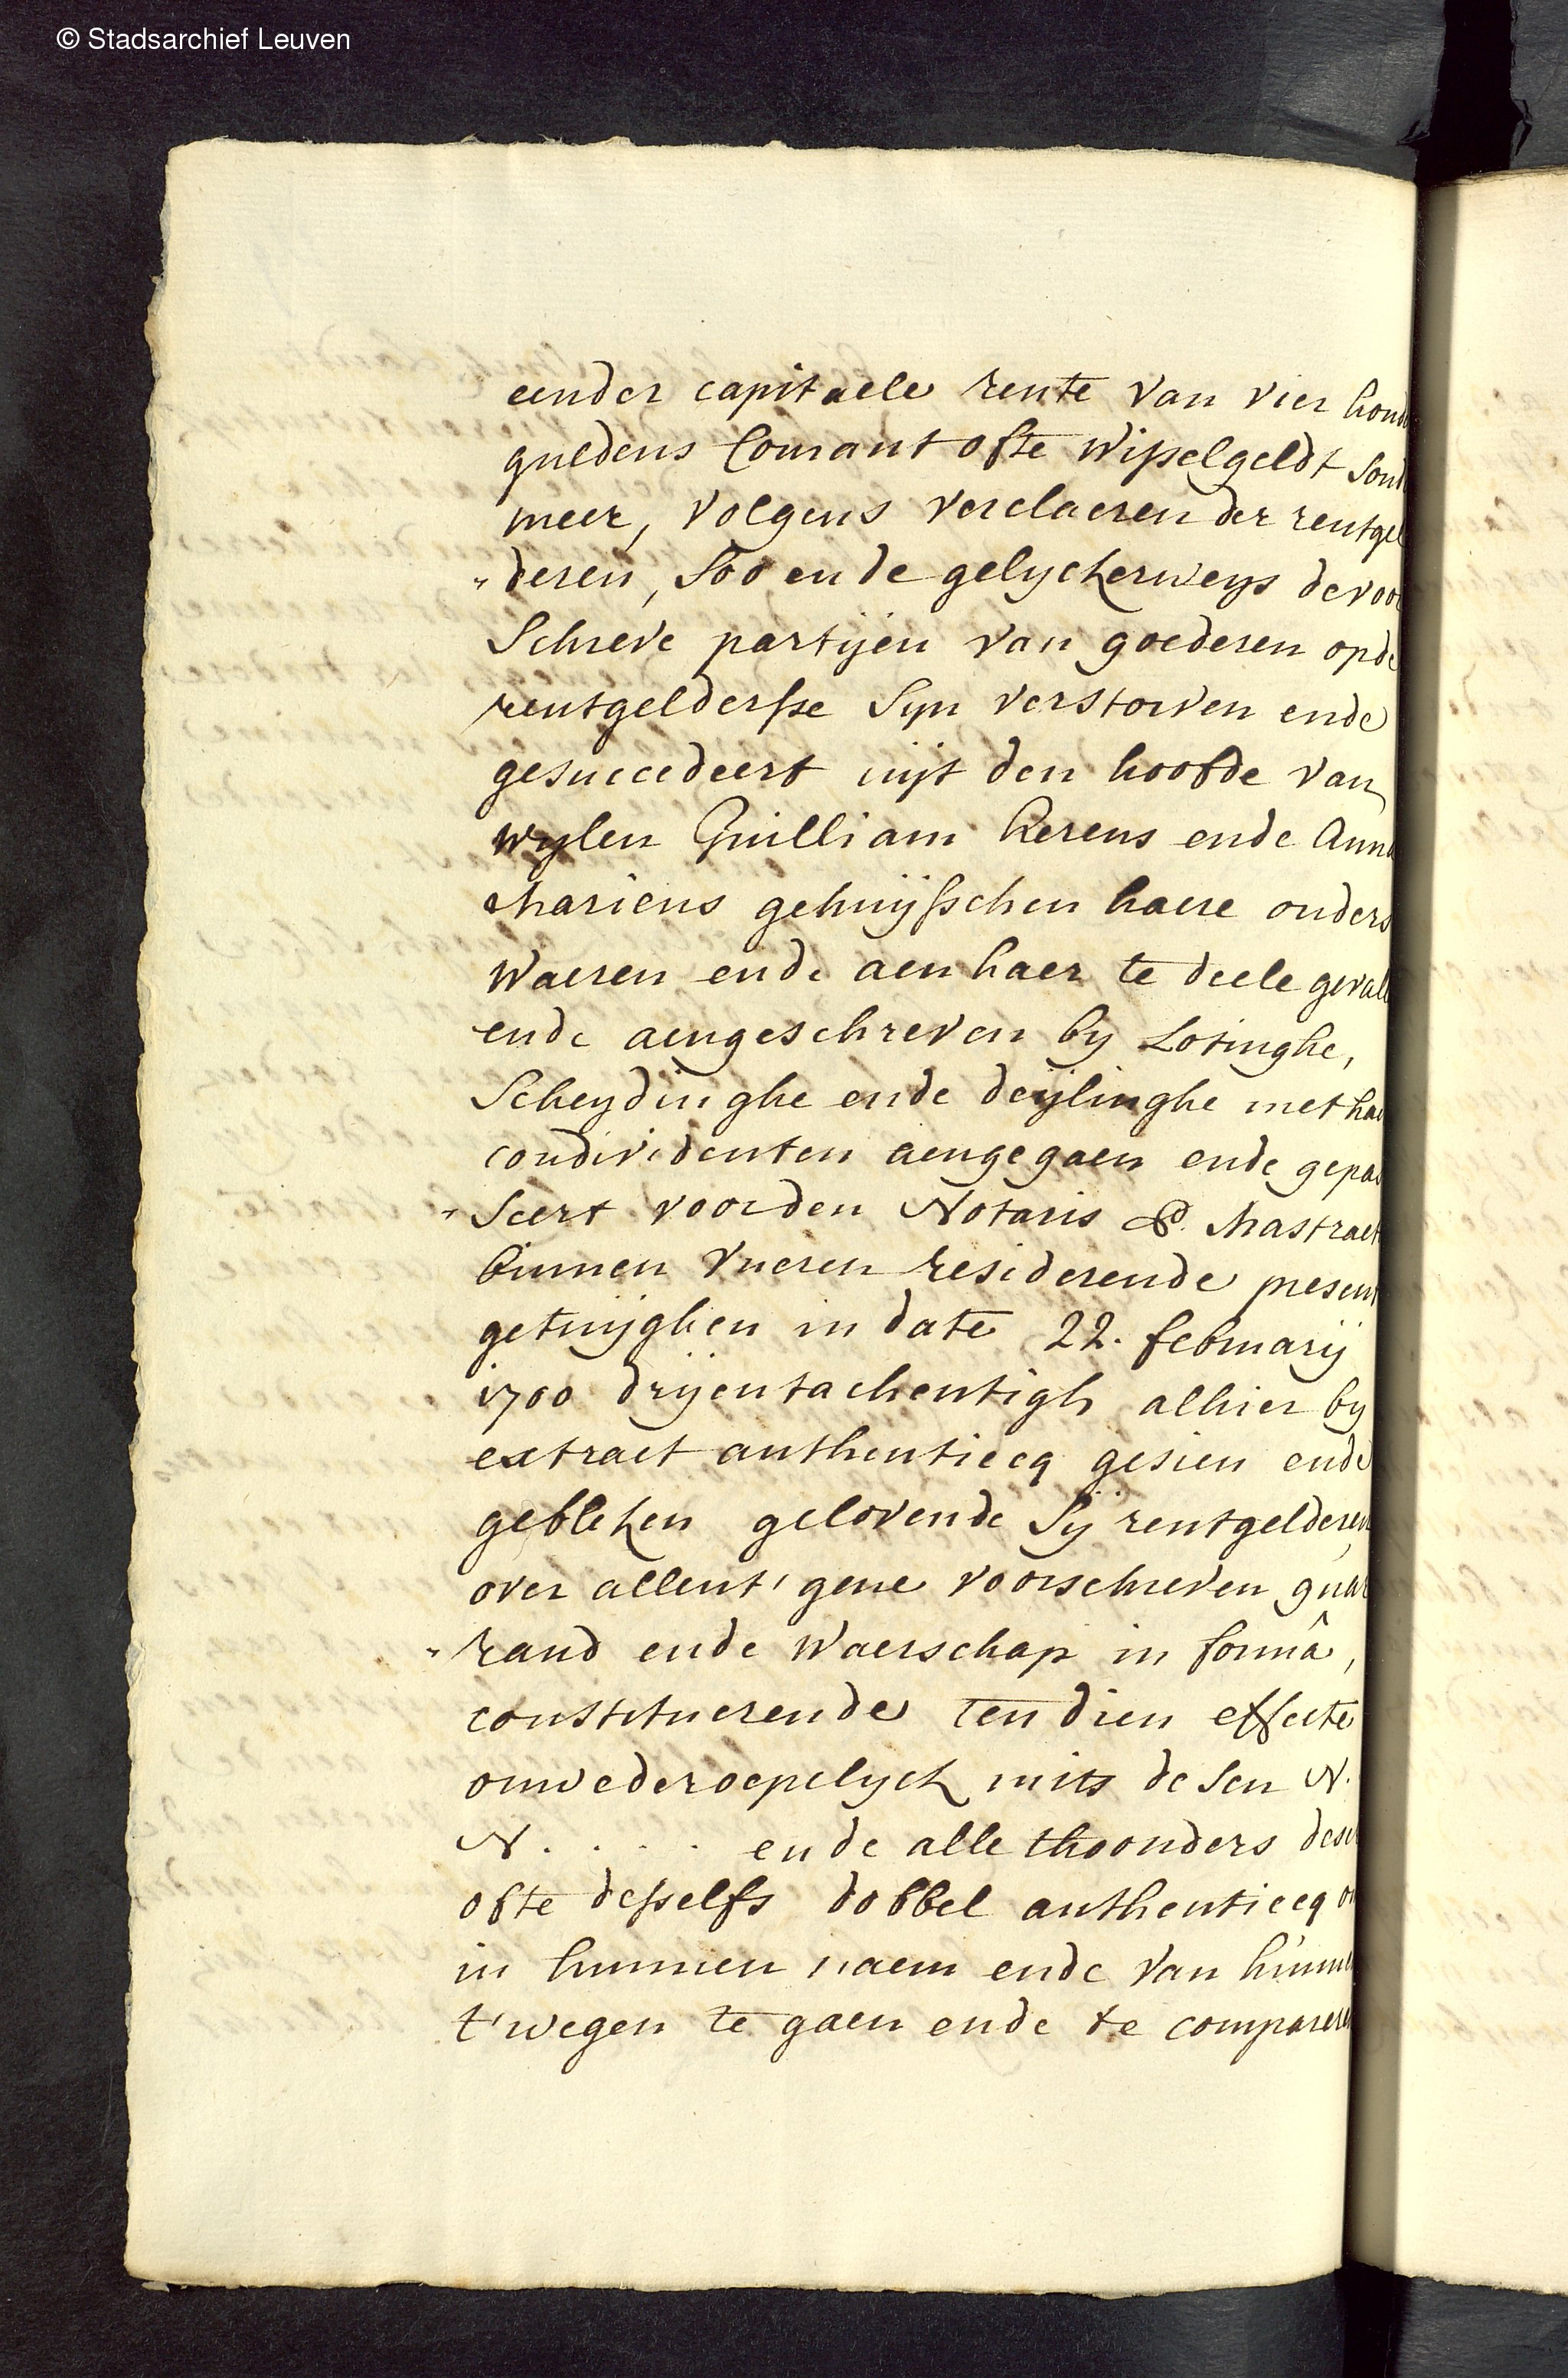 © Stadsarchief Leuven
eender capitaele rente van vier hond
guldens Courant ofte wisselgeldt sond
meer, volgens verclaeren der rentgel
"deren, soo ende gelyckerweys de voor
schreve partijen van goederen opde
rentgeldersse syn verstorven ende
gesuccedeert uijt den hoofde van
wylen Guilliam Kerens ende Anna
Mariens gehuijsschen haere ouders
waeren ende aen haer te deele gevall
ende aengeschreven by Lotinghe,
Scheydinghe ende deijlinghe met hae
condividenten aengegaen ende gepas
"seert voorden Notaris P. Mastraet
binnen Vueren residerende present
getuijghen in date 22. februarij
1700 drijentachentigh alhier by
extract authenticcq gesien ende
gebleken gelovende sij rentgelderen
over allent' gene voorschreven gua
"rand ende waerschap in formâ,
constituerende ten dien effecte
onwederoepelyck mits desen N.
N. . . . . ende alle thoonders deser
ofte desselfs dobbel authentiecq om
in hunnen naem ende van hunnen
t'wegen te gaen ende te compareren